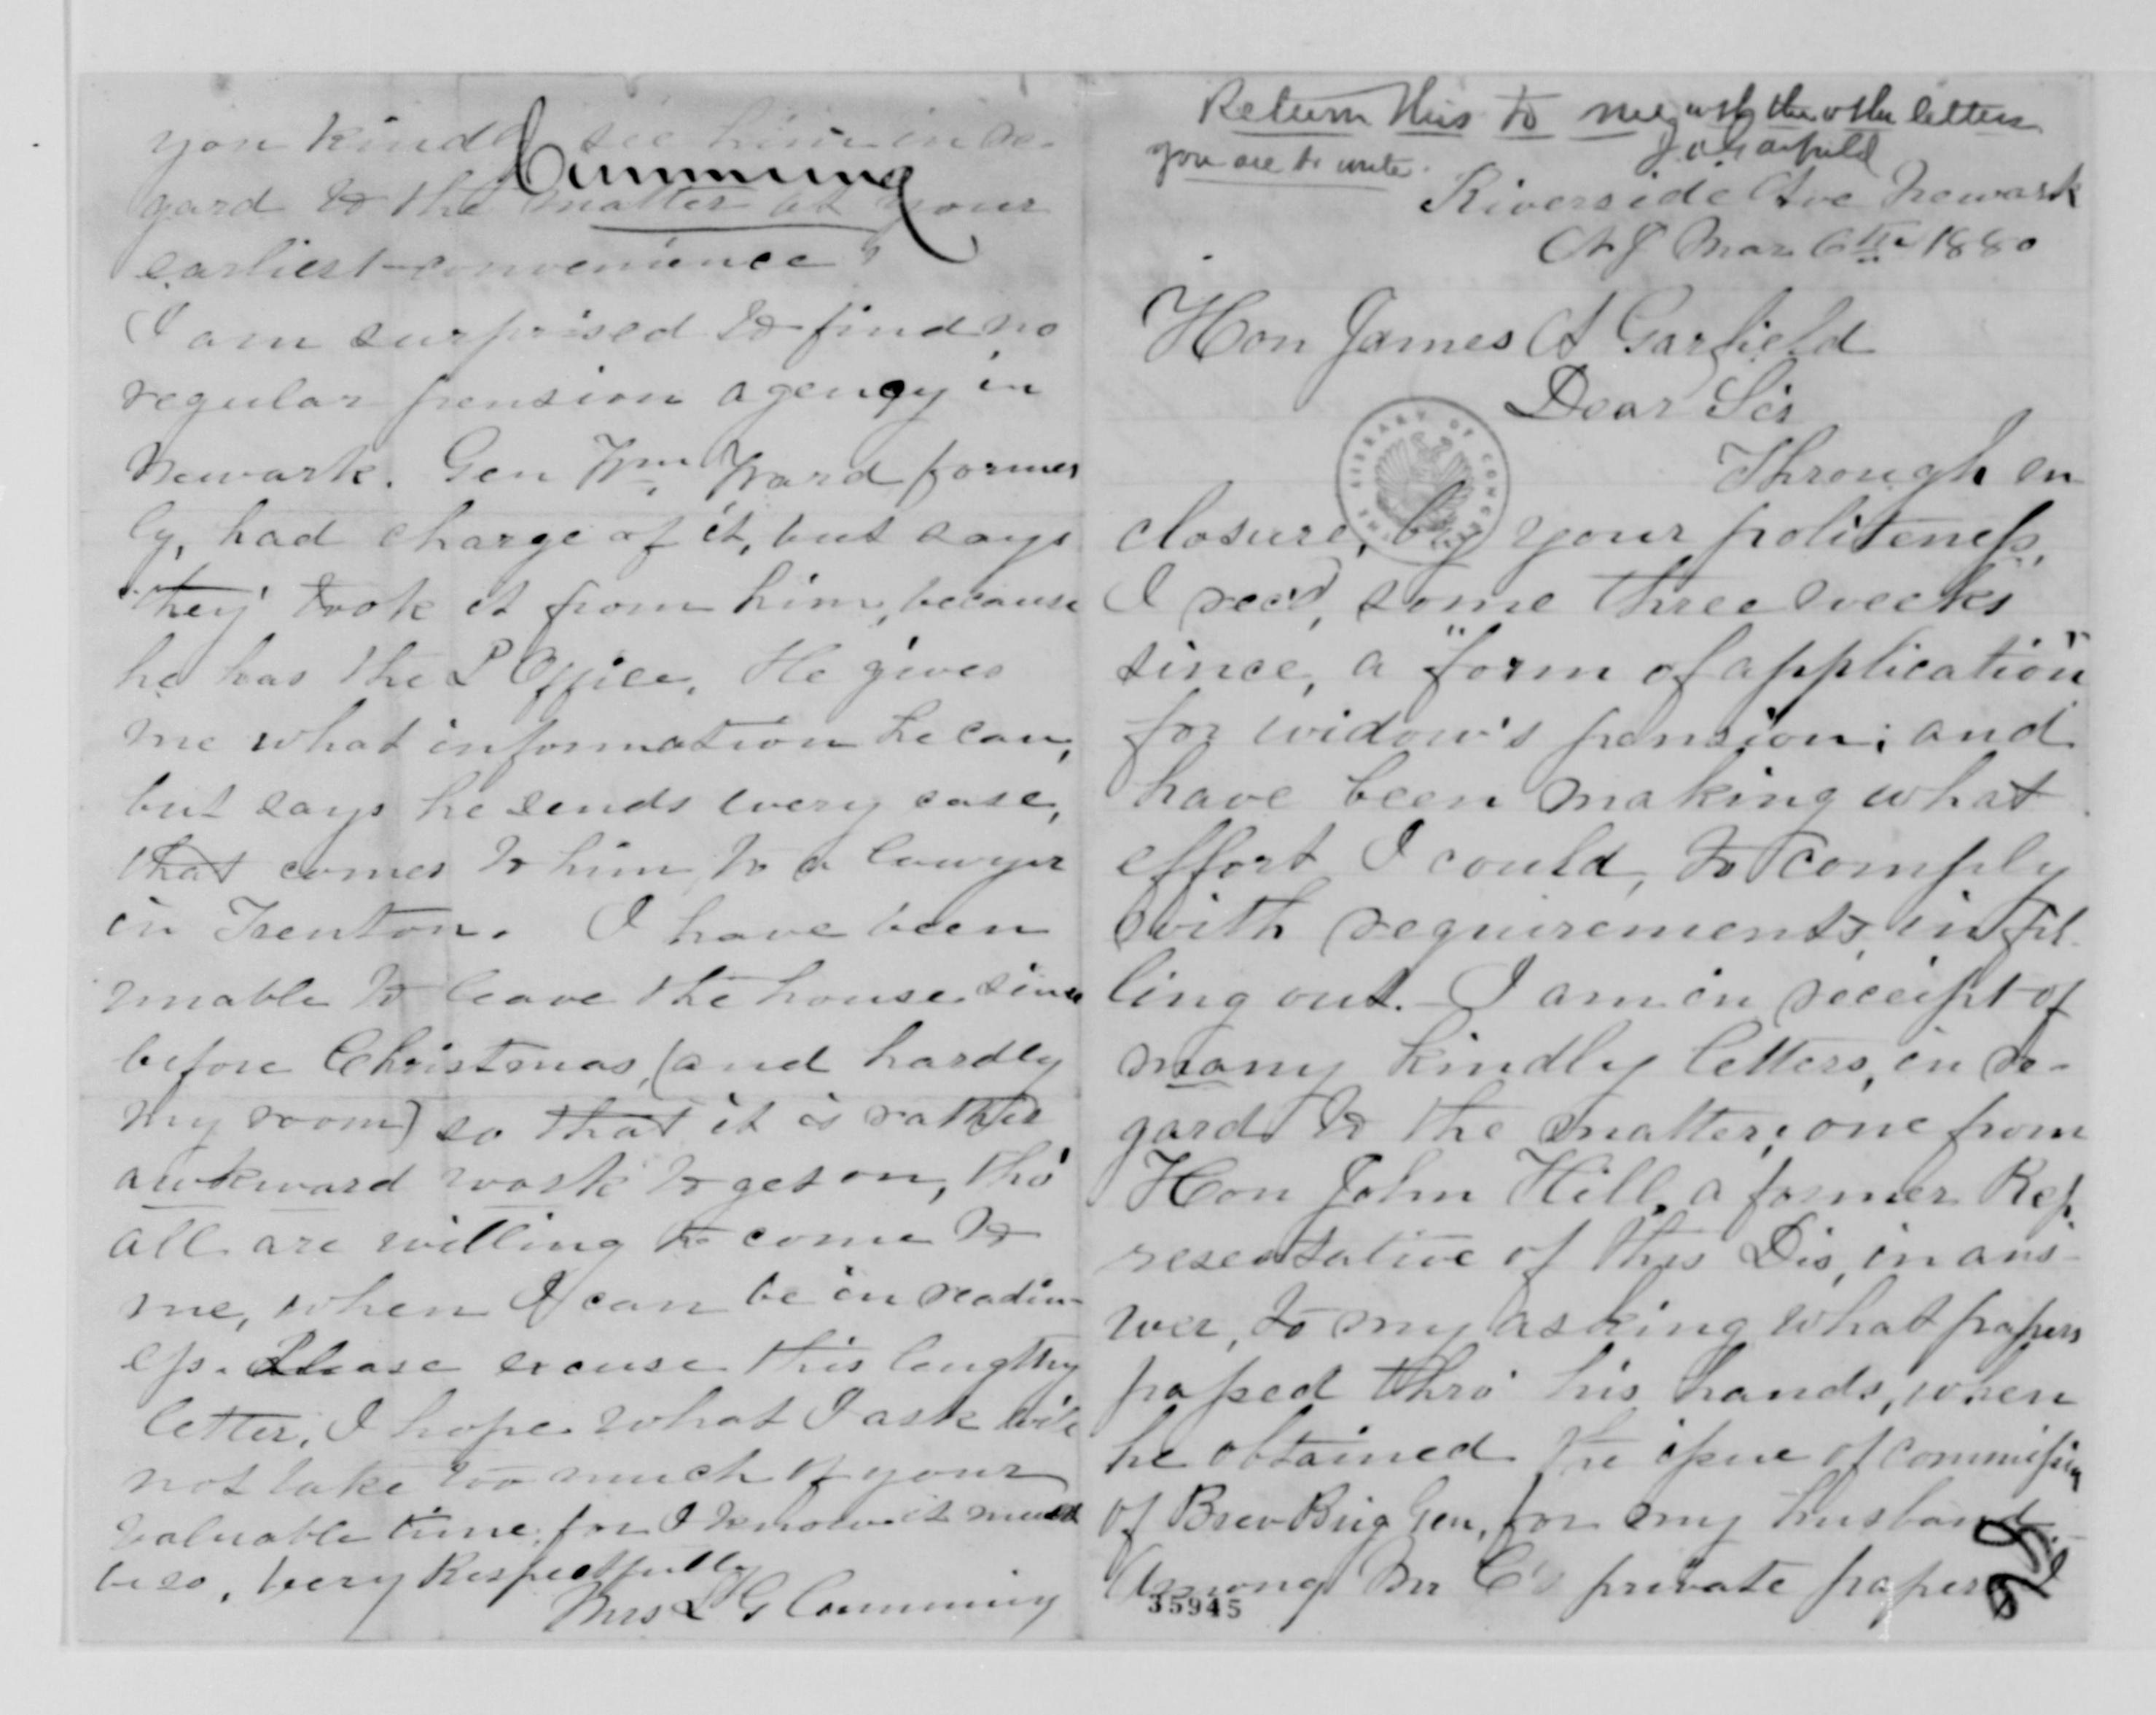 Return this to me, with the other letters
you are to write. J. A. Garfield
Riverside Ave Newark
N J Mar 6th 1880
Hon James A Garfield
Dear Sir
Through en
closure, by your politeness,
I recd, some three weeks
since, a "form of application"
for widow's pension; and
have been making what
effort I could, to comply
with requirements, in fil-
ling out. I am in receipt of
many kindly letters, in re-
gard to the matter; one from
Hon John Hill, a former Rep,
resentative of this Dis, in ans-
wer, to my asking what papers
passed thro' his hands, when
he obtained the issue of commission
of Brev Brig Gen, for my husband.
Among Mr C's private papers
35945
THE LIBRARY OF CONGRESS
Cumming
you kindly see him in re-
gard to the matter at your
earliest convenience?
I am surprised to find no
regular pension agency in
Newark. Gen Wm Ward former
ly, had charge of it, but says
"they" took it from him, because
he has the P Office. He gives
me what information he can,
but says he sends every case,
that comes to him, to a lawyer
in Trenton. I have been
unable to leave the house since
before Christmas, (and hardly
my room) so that it is rather
awkward work to get on, tho'
all are willing to come to
me, when I can be in readin-
ess. Please excuse this lengthy
letter, I hope what I ask will
not take too much of your
valuable time, for I know it must
be so, Very Respectfully
Mrs L G Cumming